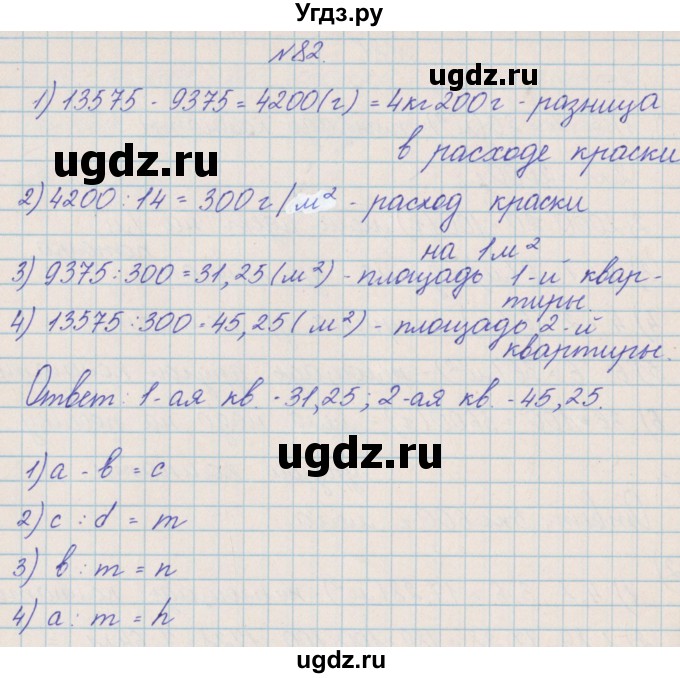 Угдз.ру
№82.
ugdz.ru
1) 13575 - 9375 = 4200(г) = 4кг 200г - разница
в расходе краски
ugdz.ru
2) 4200 : 14 = 300 г/м² - расход краски
на 1м²
3) 9375 : 300 = 31,25 (м²) - площадь 1-й квар-
тиры.
4) 13575 : 300 = 45,25 ( м²) - площадь 2-й
квартиры.
ugdz.ru
Ответ: 1-ая кв. - 31,25; 2-ая кв. - 45,25.
ugdz.ru
1) a - b = c
2) c : d = m
ugdz.ru
3) b : m = n
4) a : m = h
ugdz.ru
ugdz.ru